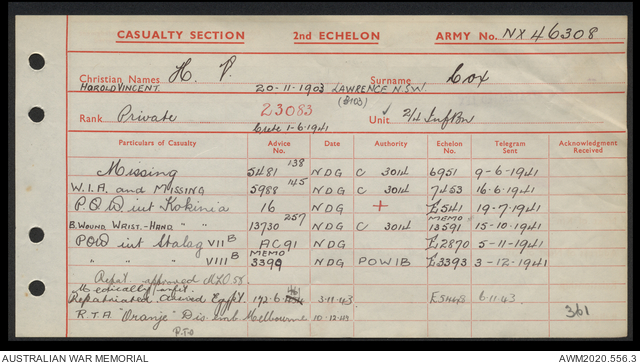 CASUALTY SECTION 2nd ECHELON ARMY No. NX46308
Christian Names H. V. Surname Cox
HAROLD VINCENT 20-11-1903 LAWRENCE N.S.W.
(2103)
Rank Private 23083 Unit 2/4 Inf Bn
Crete 1-6-1941
Particulars of Casualty Advice No. DATE Authority Echelon No. Telegram Sent Acknowledgment Received
Missing 5481 138 NDG C 3014 6951 9-6-1941
W.I.A. and MISSING 5988 145 NDG C 3014 7453 16.6.1941
P.O.W int Kokinia 16 NDG + E541 19.7.1941
B. WOUND WRIST-HAND " " 13730 257 NDG C 3014 MEMO 13591 15-10-1941
POW int Stalag VII B AC91 NDG E12870 5-11-1941
" " " VIII B MEMO 3399 NDG POW1B E3393 3-12-1941
Repat. approved
Medically unfit.
Repatriated arrived Egypt. 3.11.43 6.11.43.
R.T.A "Oranje" Disemb Melbourne 361
P.T.O
AUSTRALIAN WAR MEMORIAL AWM2020.556.3